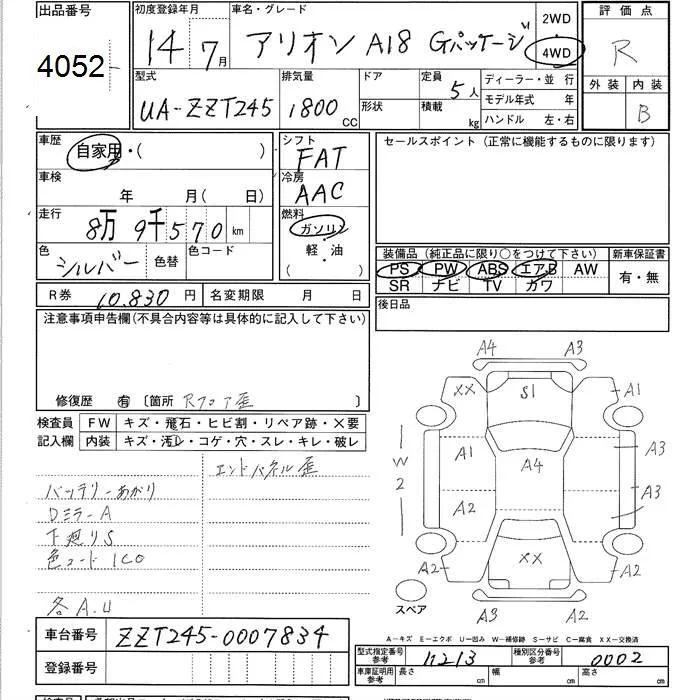 出品番号
4052
初度登録年月
14 7月
車名・グレード
アリオン A18 Gパッケージ
2WD
4WD
評価点
R
外装 内装
B
型式
UA-ZZT245
排気量
1800 CC
ドア
形状
定員
5人
積載
kg
ディーラー・並行
モデル年式 年
ハンドル 左・右
車歴
自家用・( )
車検
年 月( 日)
走行
8万9千570 km
色
シルバー
色替
色コード
シフト
FAT
冷房
AAC
燃料
ガソリン
軽・油
( )
セールスポイント (正常に機能するものに限ります)
装備品 (純正品に限り○をつけて下さい)
新車保証書
PS PW ABS エアB AW
有・無
SR ナビ TV カワ
後日品
R券 10,830 円
名変期限 月 日
注意事項申告欄(不具合内容等は具体的に記入して下さい)
修復歴 有 〔箇所 Rフロア歪 〕
検査員
記入欄
FW キズ・飛石・ヒビ割・リペア跡・×要
内装 キズ・汚れ・コゲ・穴・スレ・キレ・破レ
エンドパネル歪
バッテリーあがり
DミラーA
下廻りS
色コード 1C0
各A.U
A4 A3
XX S1 A1
A1 A4 A3
W2
A2 A3
XX
A2 A2
スペア
A3 A2
A―キズ E―エクボ U―凹み W―補修跡 S―サビ C―腐食 XX―交換済
車台番号
ZZT245-0007834
登録番号
型式指定番号
参考
11213
種別区分番号
参考
0002
車庫証明用
参考
長さ cm
幅 cm
高さ cm